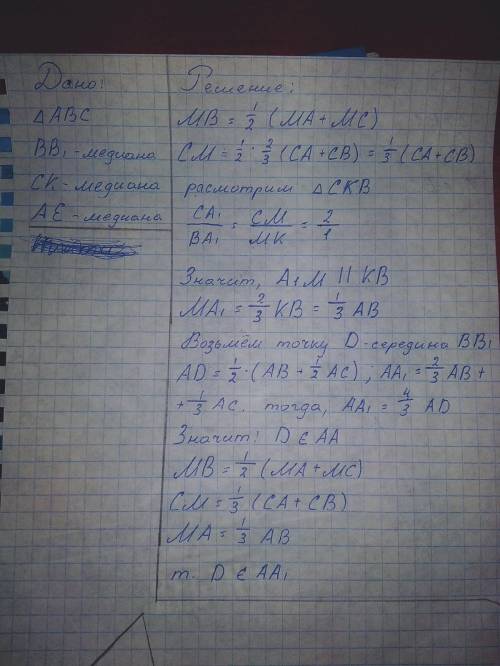 Дано:
△ABC
BB₁ - медиана
CK - медиана
AE - медиана
Решение:
MB = 1/2 (MA + MC)
CM = 1/2 · 2/3 (CA + CB) = 1/3 (CA + CB)
расмотрим △CKB
CA₁/BA₁ = CM/MK = 2/1
Значит, A₁M || KB
MA₁ = 2/3 KB = 1/3 AB
Возьмём точку D - середина BB₁
AD = 1/2 · (AB + 1/2 AC) ; AA₁ = 2/3 AB +
+ 1/3 AC. тогда, AA₁ = 4/3 AD
Значит: D ∈ AA
MB = 1/2 (MA + MC)
CM = 1/3 (CA + CB)
MA = 1/3 AB
т. D ∈ AA₁